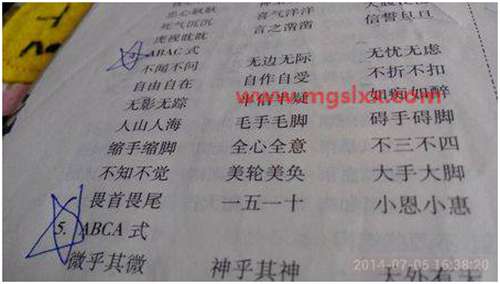 死气沉沉 喜气洋洋
虎视眈眈 言之凿凿 信誓旦旦
ABAC 式
不闻不问 无边无际 无忧无虑
自由自在 自作自受 不折不扣
无影无踪 半信半疑 如痴如醉
www.mgslxx.com
人山人海 毛手毛脚 碍手碍脚
缩手缩脚 全心全意 不三不四
不知不觉 美轮美奂 大手大脚
畏首畏尾 一五一十 小恩小惠
5. ABCA 式
微乎其微 神乎其神 天外有天
2014-07-05 16:38:20